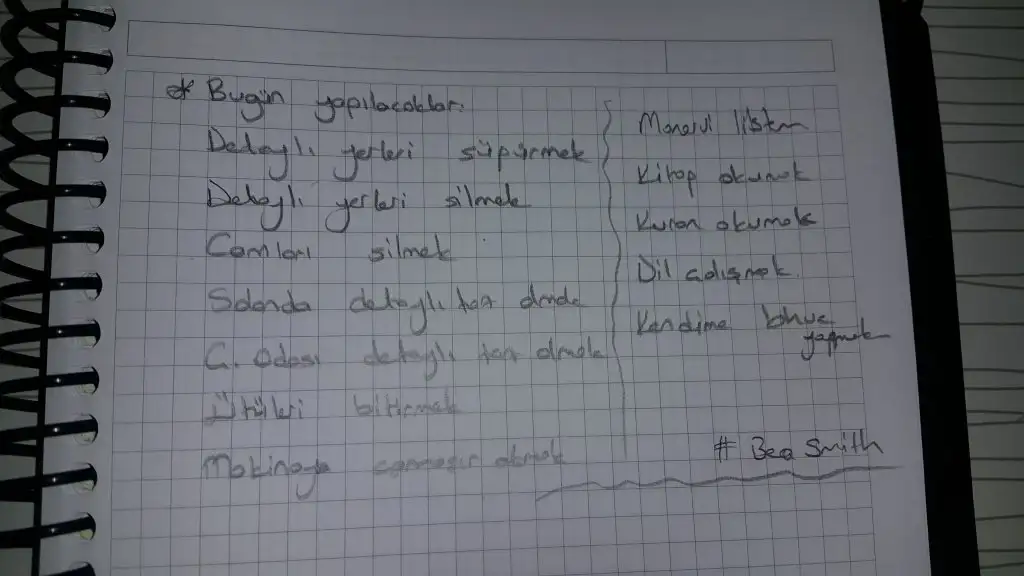 * Bugün yapılacaklar.
Detaylı yerleri süpürmek
Detaylı yerleri silmek
Camları silmek
Salonda detaylı toz almak
Ç. Odası detaylı toz almak
Ütüleri bitirmek
Makinaya çamaşır atmak
Manevi listem
Kitap okumak
Kuran okumak
Dil çalışmak
Kendime
yapmak
# Bea Smith